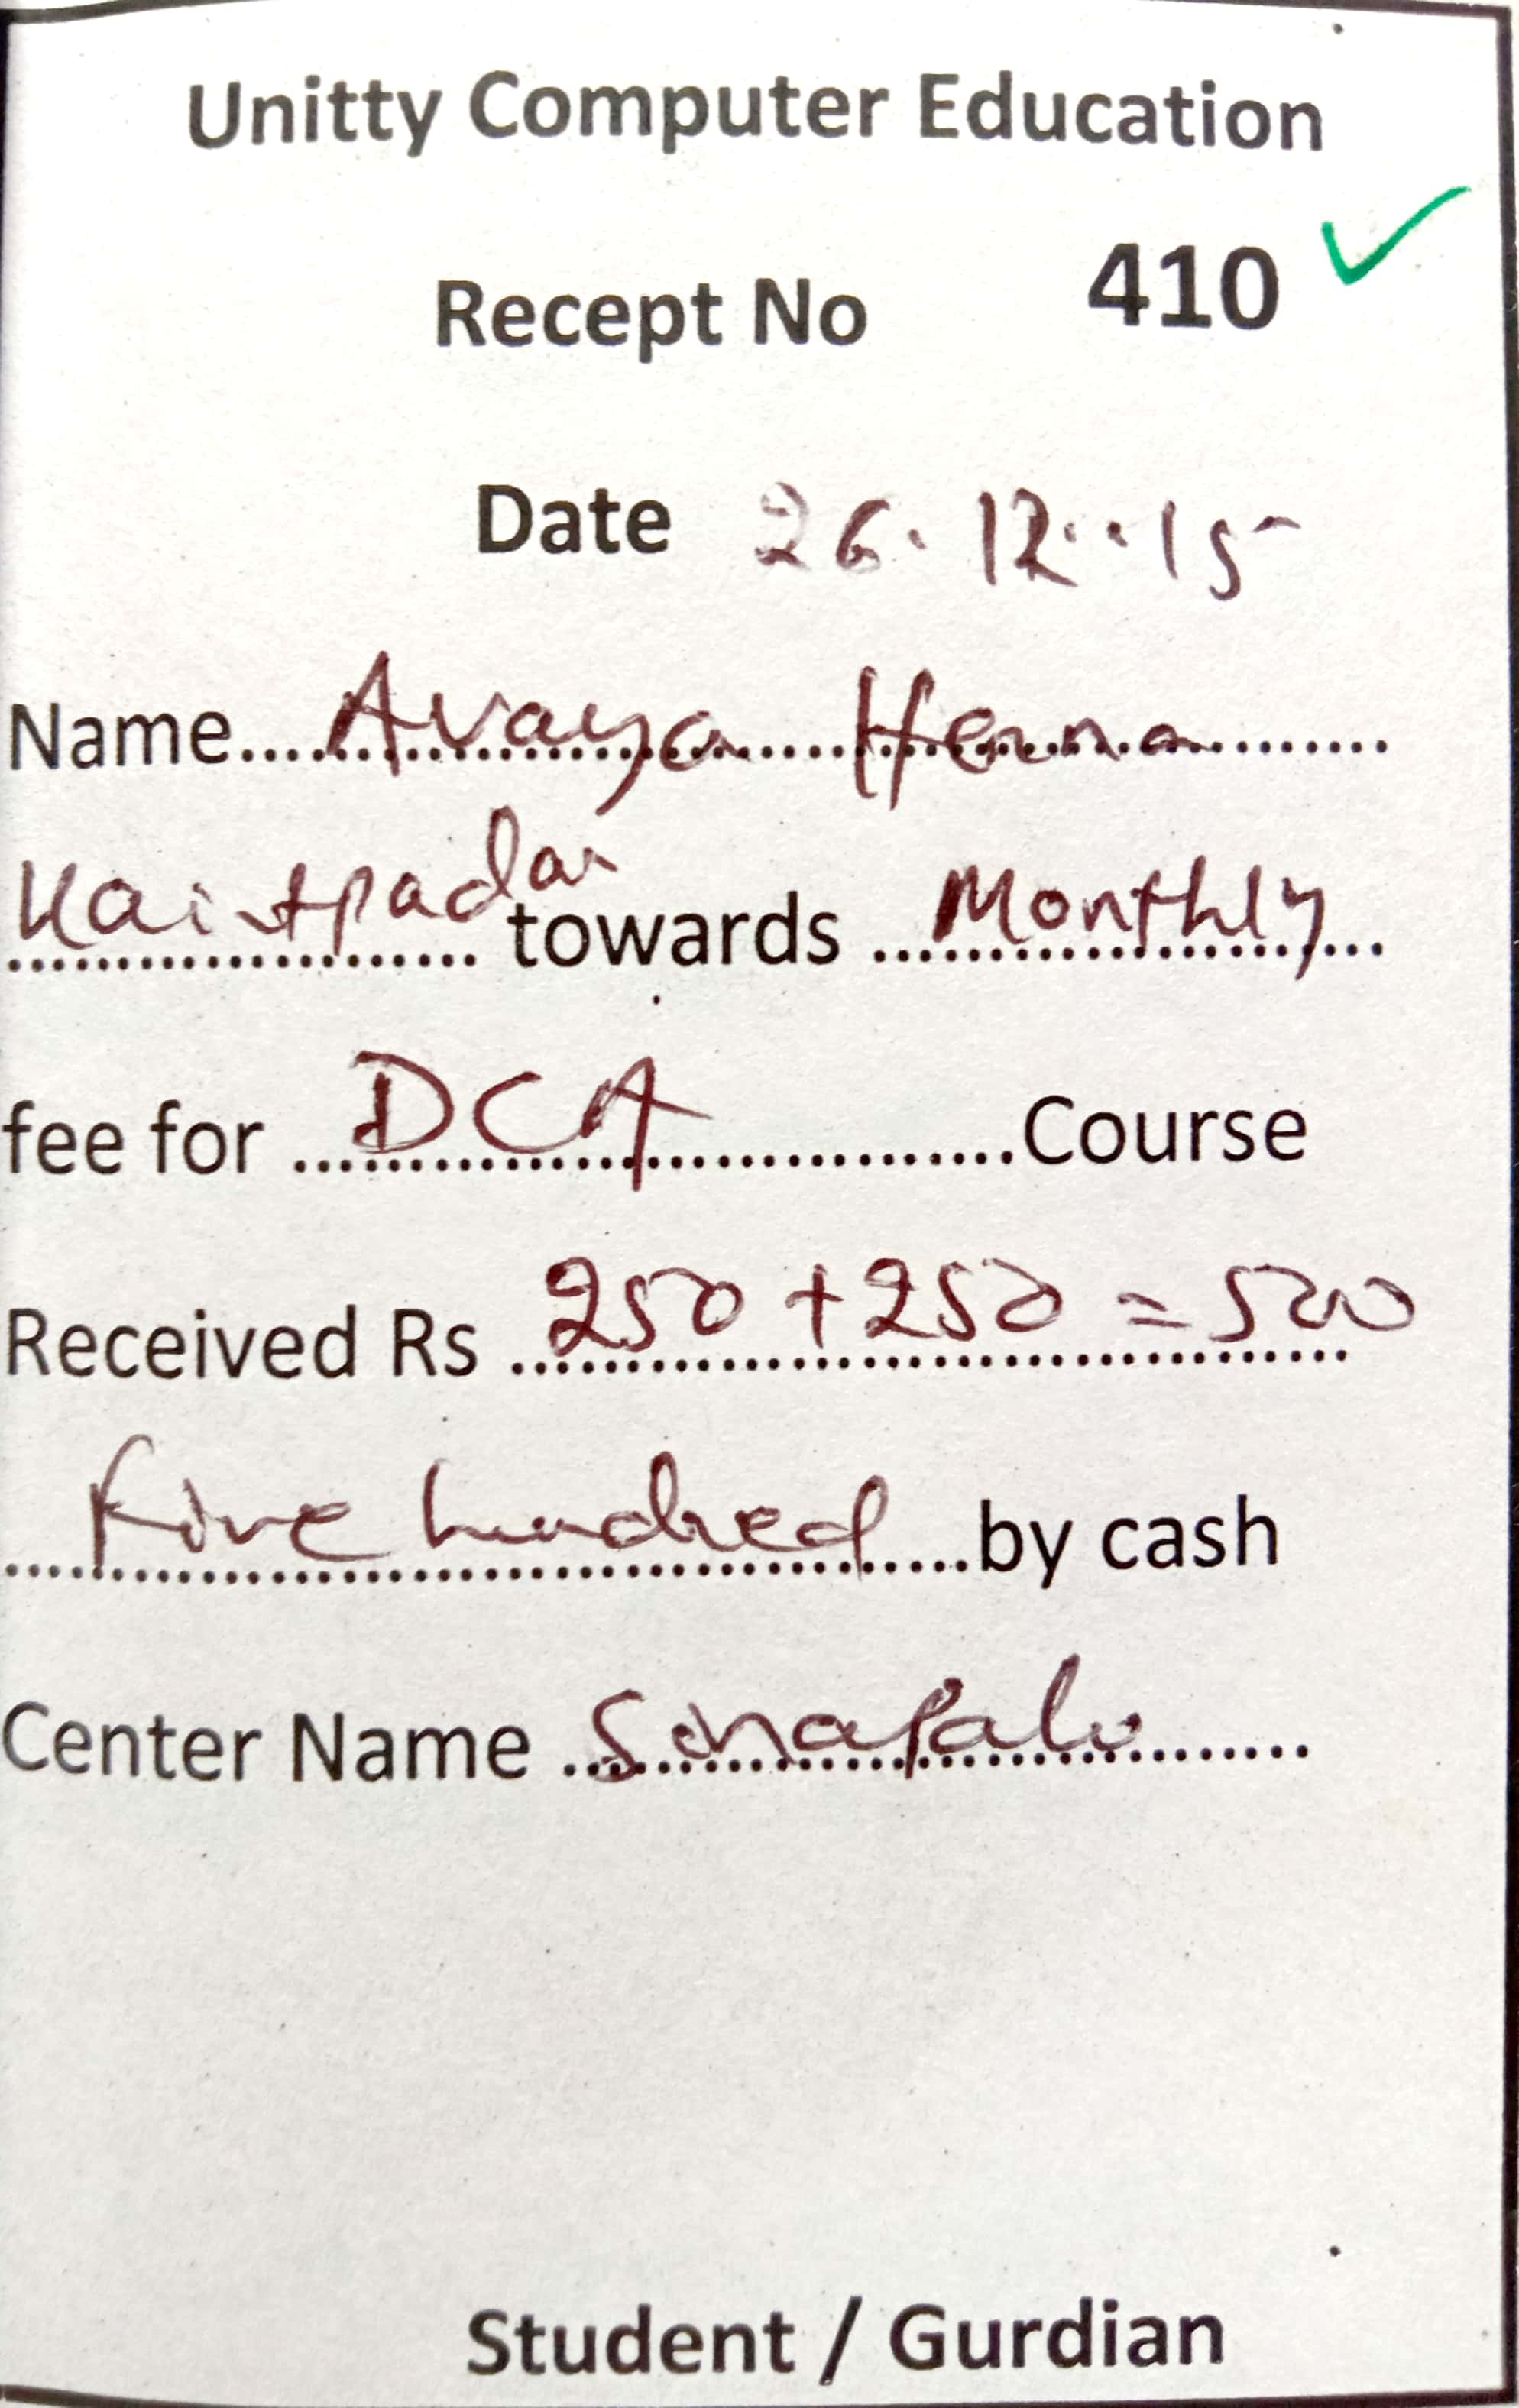 Unitty Computer Education
Recept No 410
Date 26.12..15
Name Avaya Henna
Kaintpadar towards Monthly
fee for DCA Course
Received Rs 250 + 250 = 500
five hundred by cash
Center Name Sinapali
Student / Gurdian